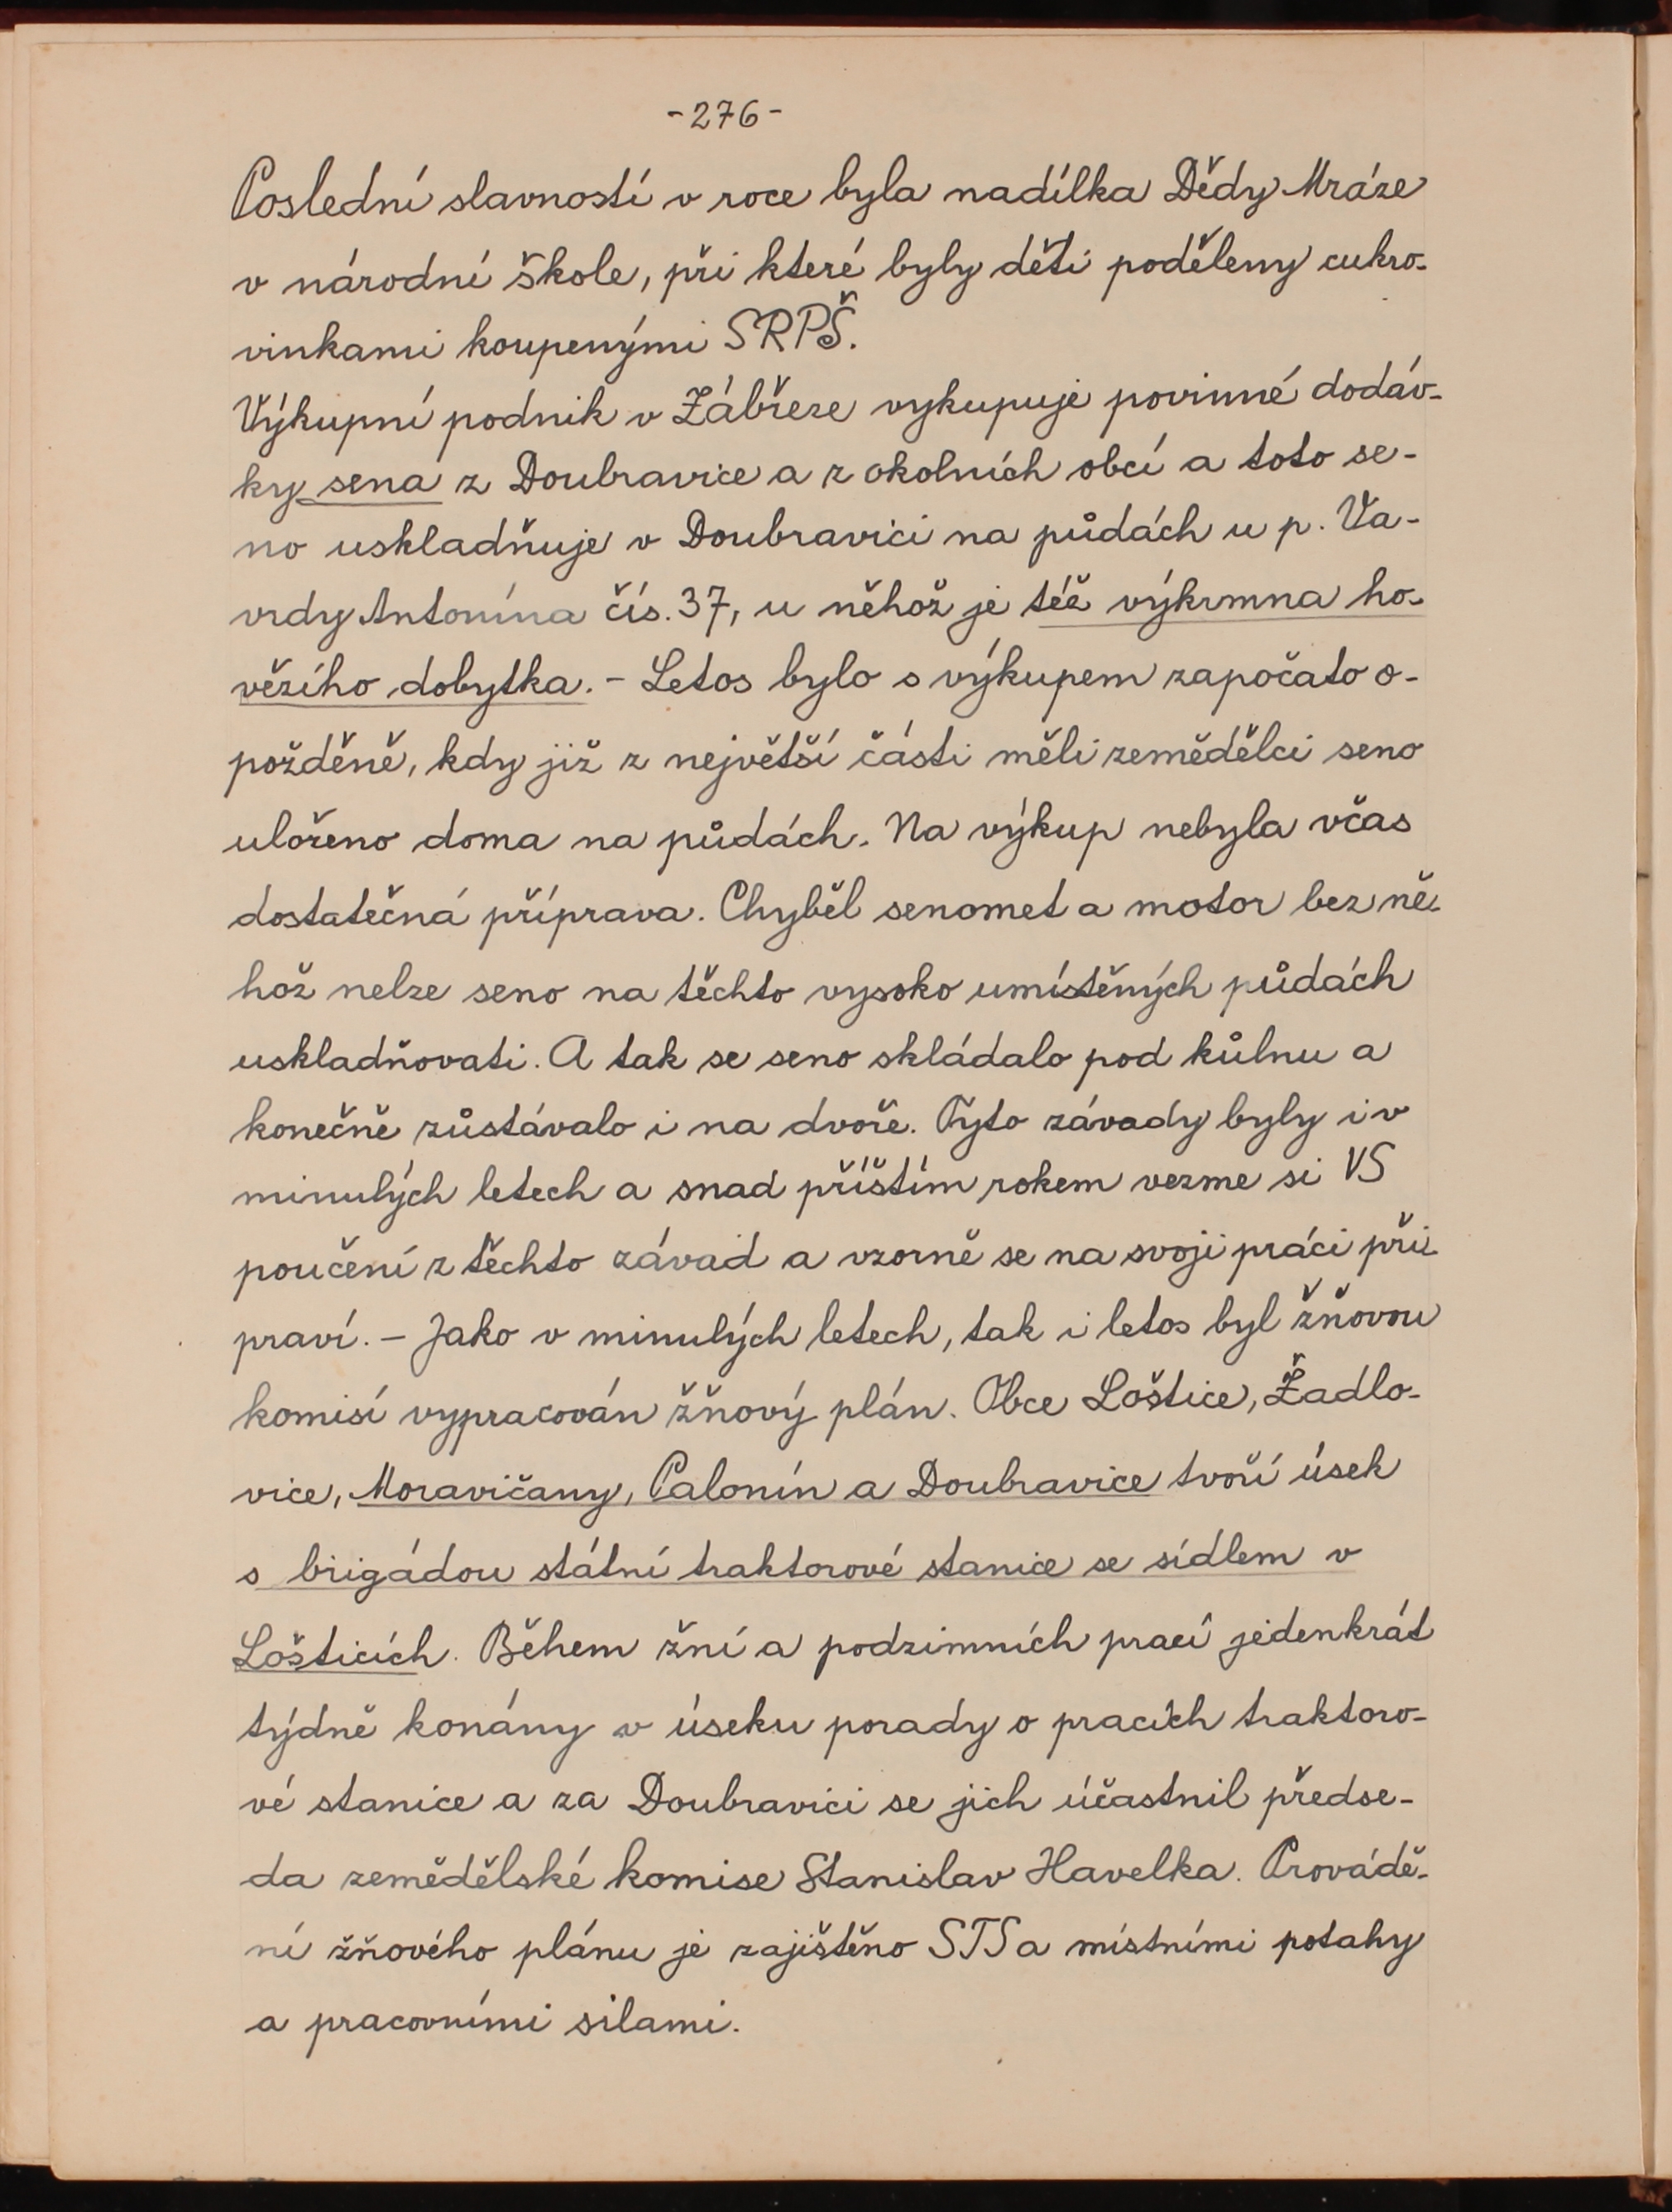 -276-
Poslední slavností v roce byla nadílka Dědy Mráze
v národní škole, při které byly děti poděleny cukro-
vinkami koupenými SRPŠ.
Výkupní podnik v Zábřeze vykupuje povinné dodáv-
ky sena z Doubravice a z okolních obcí a toto se-
no uskladňuje v Doubravici na půdách u p. Va-
vrdy Antonína čís. 37, u něhož je též výkrmna ho-
vězího dobytka. - Letos bylo s výkupem započato o-
požděně, kdy již z největší části měli zemědělci seno
uloženo doma na půdách. Na výkup nebyla včas
dostatečná příprava. Chyběl senomet a motor bez ně-
hož nelze seno na těchto vysoko umístěných půdách
uskladňovati. A tak se seno skládalo pod kůlnu a
konečně zůstávalo i na dvoře. Tyto závady byly i v
minulých letech a snad příštím rokem vezme si VS
poučení z těchto závad a vzorně se na svoji práci při-
praví. - Jako v minulých letech, tak i letos byl žňovou
komisí vypracován žňový plán. Obce Loštice, Žadlo-
vice, Moravičany, Palonín a Doubravice tvoří úsek
s brigádou státní traktorové stanice se sídlem v
Lošticích. Během žní a podzimních prací jedenkrát
týdně konány v úseku porady o pracích traktoro-
vé stanice a za Doubravici se jich účastnil předse-
da zemědělské komise Stanislav Havelka. Provádě-
ní žňového plánu je zajištěno STS a místními potahy
a pracovními silami.